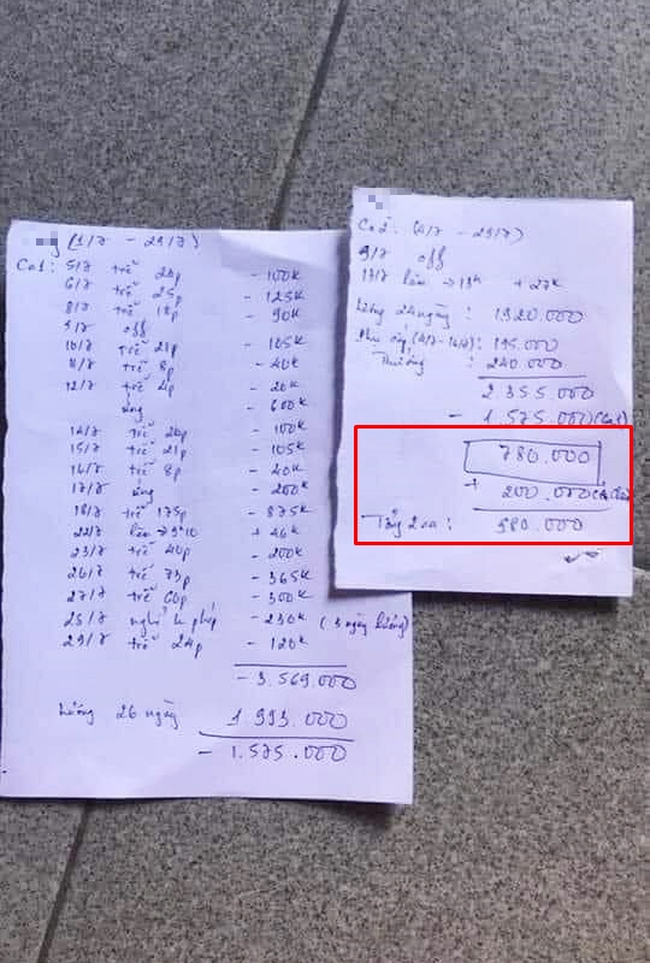 (1/7 - 29/7)
Ca 1: 5/7 trễ 20p - 100k
6/7 trễ 25p - 125k
8/7 trễ 18p - 90k
9/7 off
10/7 trễ 21p - 105k
11/7 trễ 8p - 40k
12/7 trễ 4p - 20k
áng - 600k
14/7 trễ 20p - 100k
15/7 trễ 21p - 105k
16/7 trễ 8p - 40k
17/7 áng - 200k
18/7 trễ 175p - 875k
22/7 làm → 9h10 + 46k
23/7 trễ 40p - 200k
26/7 trễ 73p - 365k
27/7 trễ 60p - 300k
28/7 nghỉ k phép - 230k (3 ngày lương)
29/7 trễ 24p - 120k
- 3.569.000
Lương 26 ngày 1.993.000
- 1.575.000
Ca 2: (4/7 - 29/7)
9/7 off
17/7 làm → 19h + 27k
Lương 24 ngày : 1.920.000
: 195.000
Thưởng : 240.000
2.355.000
- 1.575.000 (ca1)
780.000
+ 200.000
Tổng 2 ca : 980.000